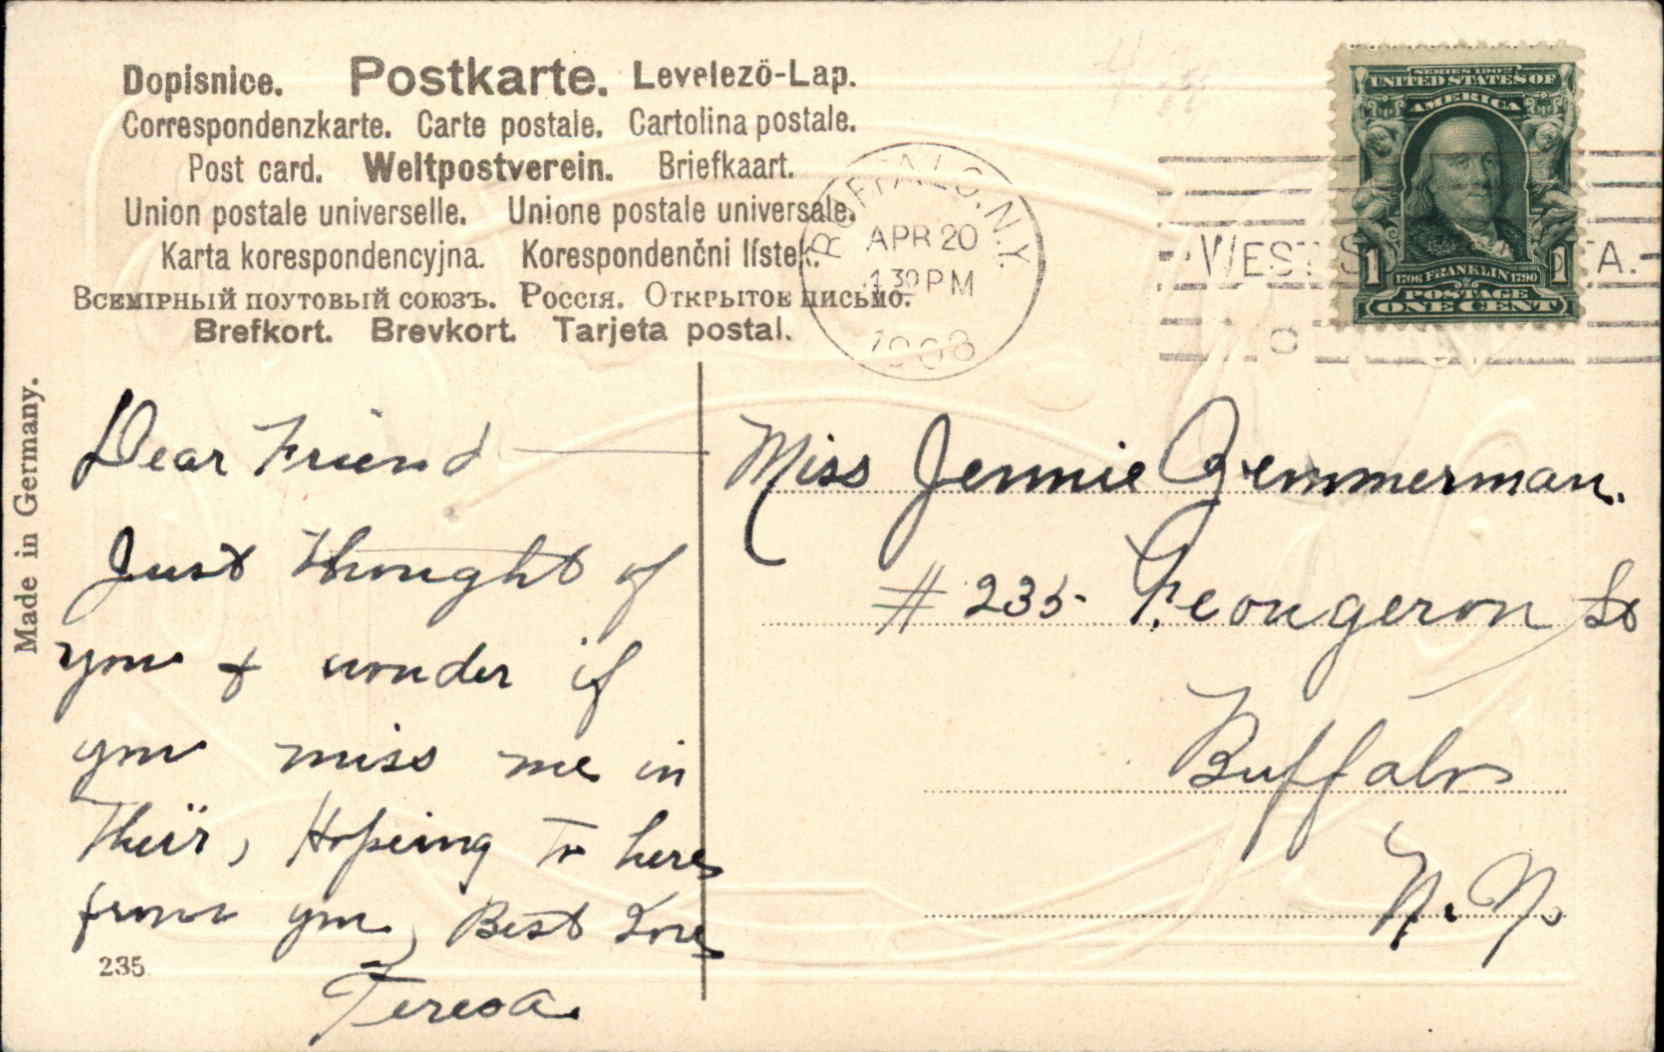 Dopisnice. Postkarte. Levelező-Lap.
Correspondenzkarte. Carte postale. Cartolina postale.
Post card. Weltpostverein. Briefkaart.
Union postale universelle. Unione postale universale.
Karta korespondencyjna. Korespondenčni lístek.
Всемірный поутовый союзъ. Россія. Открытое письмо.
Brefkort. Brevkort. Tarjeta postal.
BUFFALO, N.Y.
APR 20
1 30 PM
1908
WEST S TA.
SERIES 1902
UNITED STATES OF
AMERICA
1706 FRANKLIN 1790
1 1
POSTAGE
ONE CENT
Made in Germany.
Dear Friend
Just thought of
you & wonder if
you miss me in
Their, Hopeing to here
from you, Best Love
Teresa.
235
Miss Jennie Zemmerman.
# 235 Feougeron St
Buffalo
N.Y.